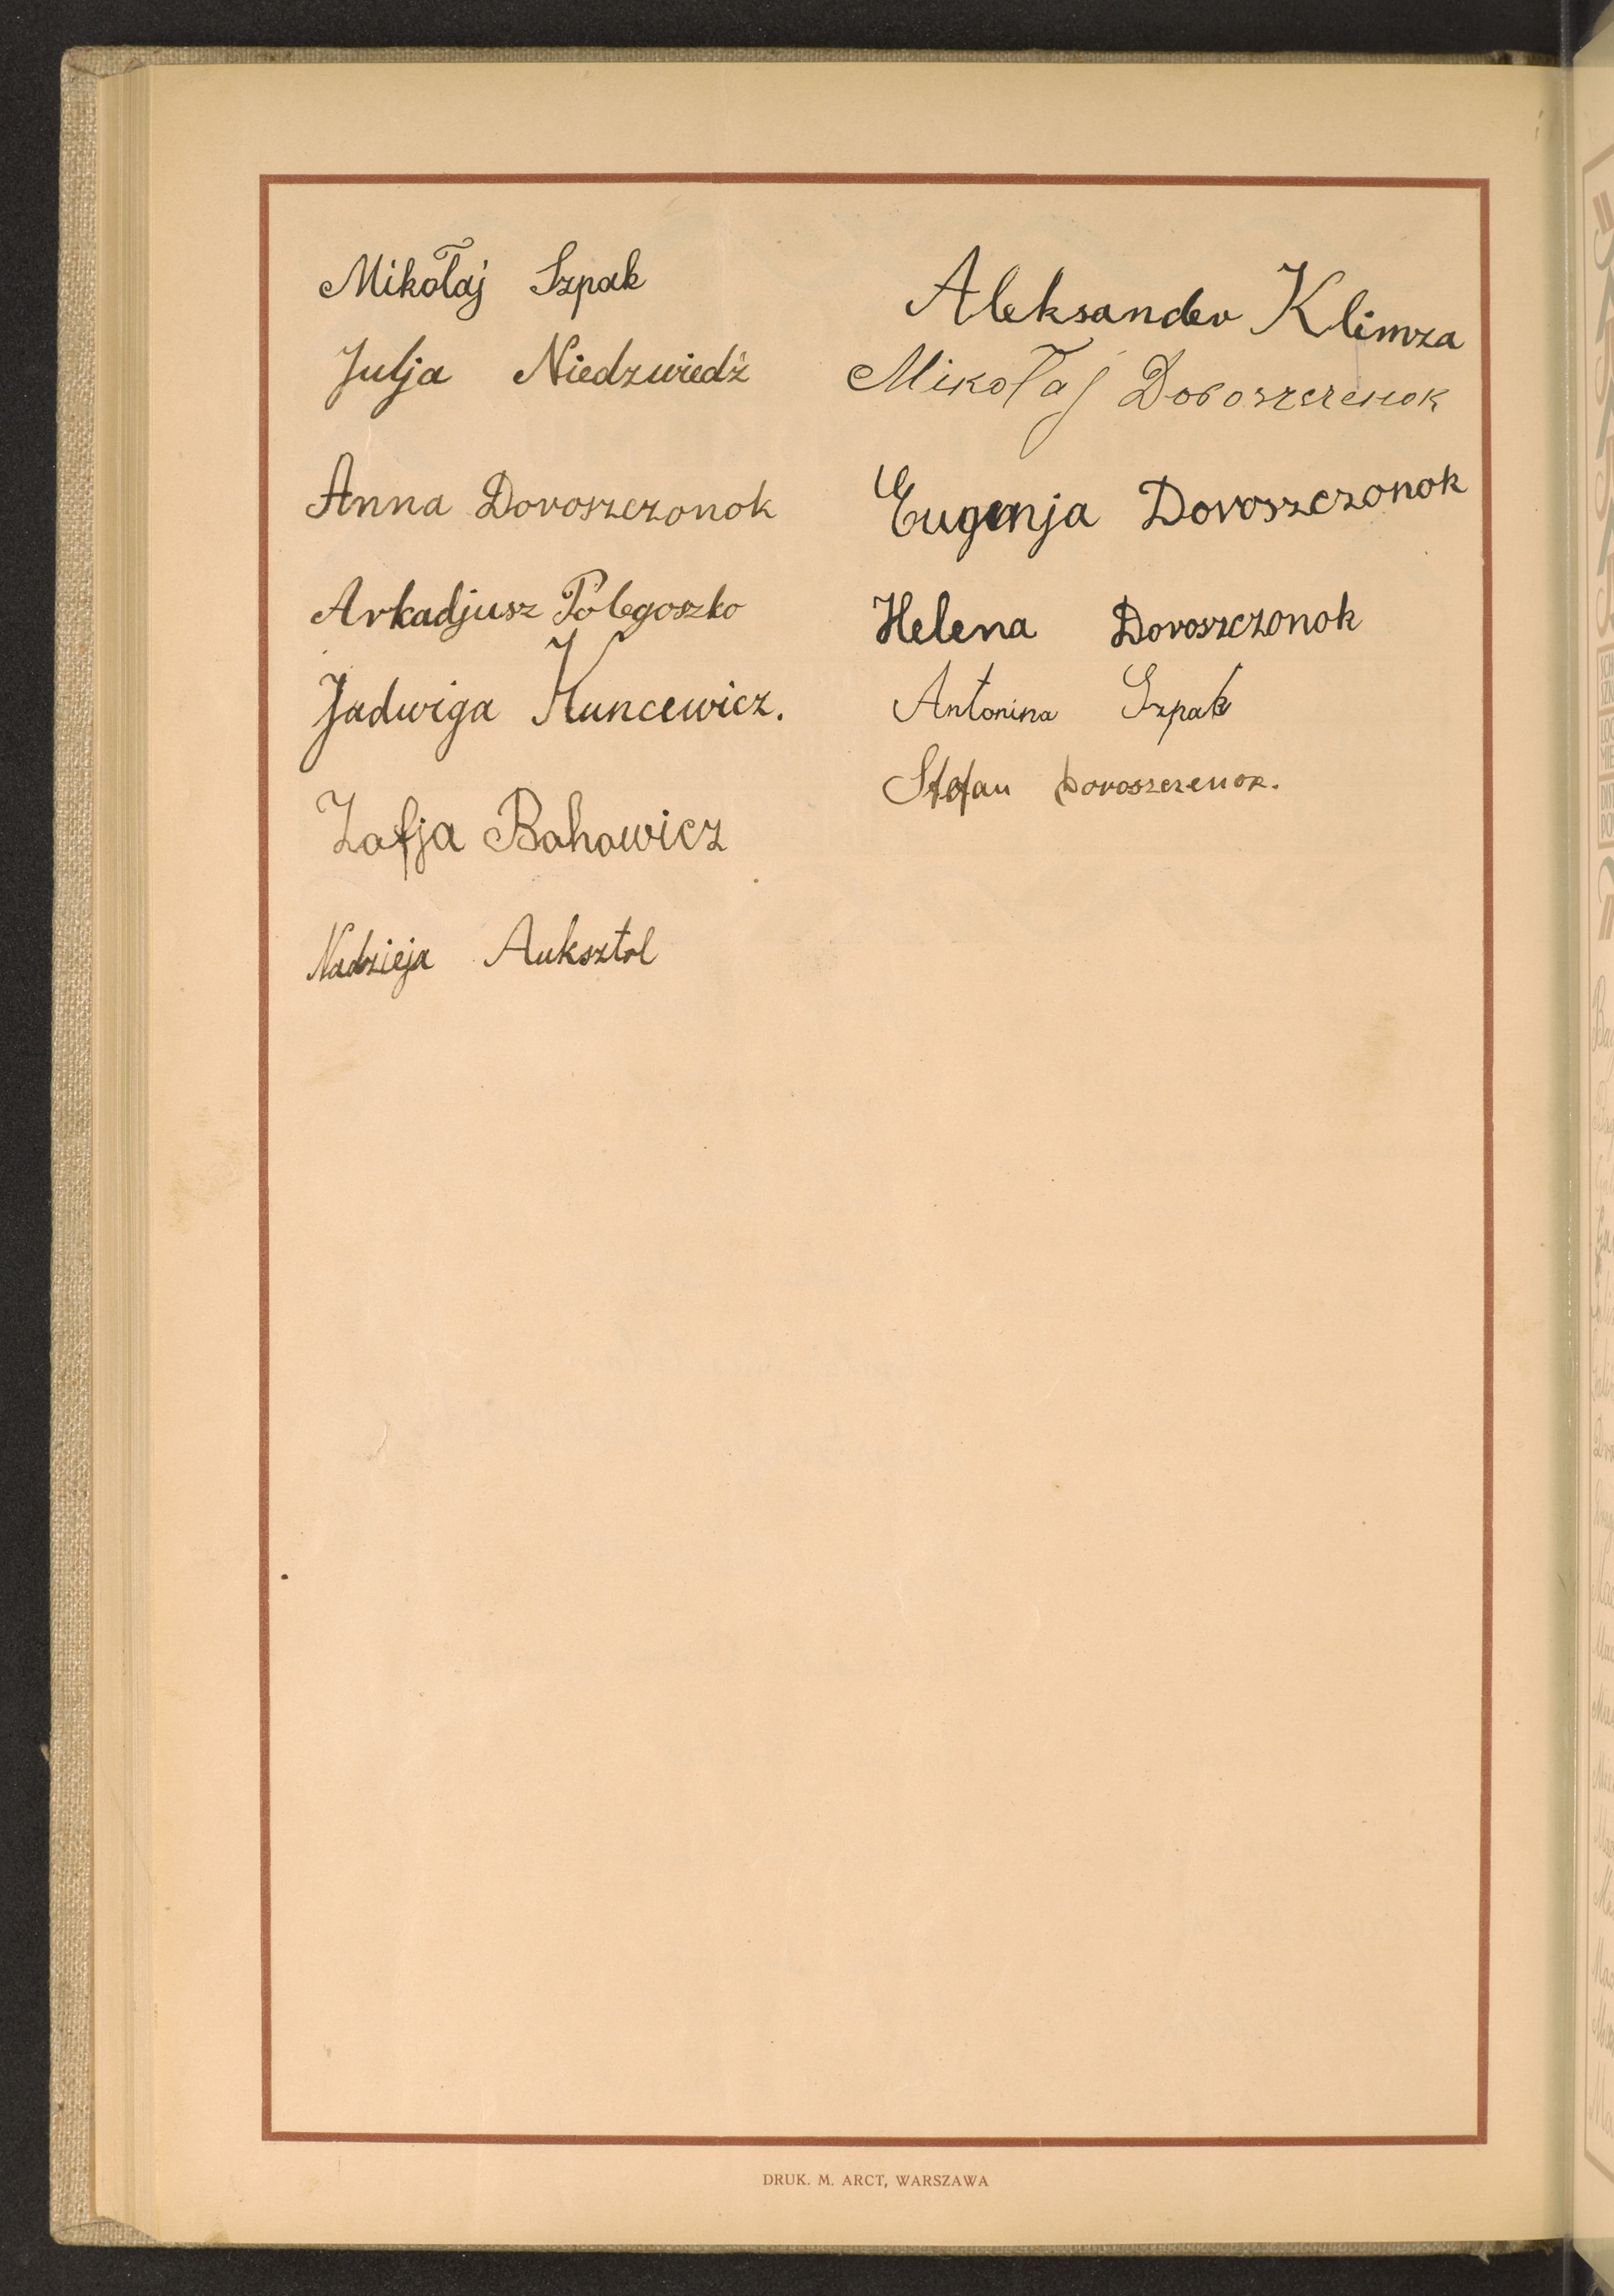 Mikołaj Szpak
Julja Niedzwiedź
Anna Doroszczonok
Arkadjusz Polegoszko
Jadwiga Kuncewicz.
Zofja Bohowicz
Nadzieja Auksztol
Aleksander Klimza
Mikołaj Doroszczenok
Eugenja Doroszczonok
Helena Doroszczonok
Antonina Szpak
Stefan Doroszczenok.
DRUK. M. ARCT, WARSZAWA